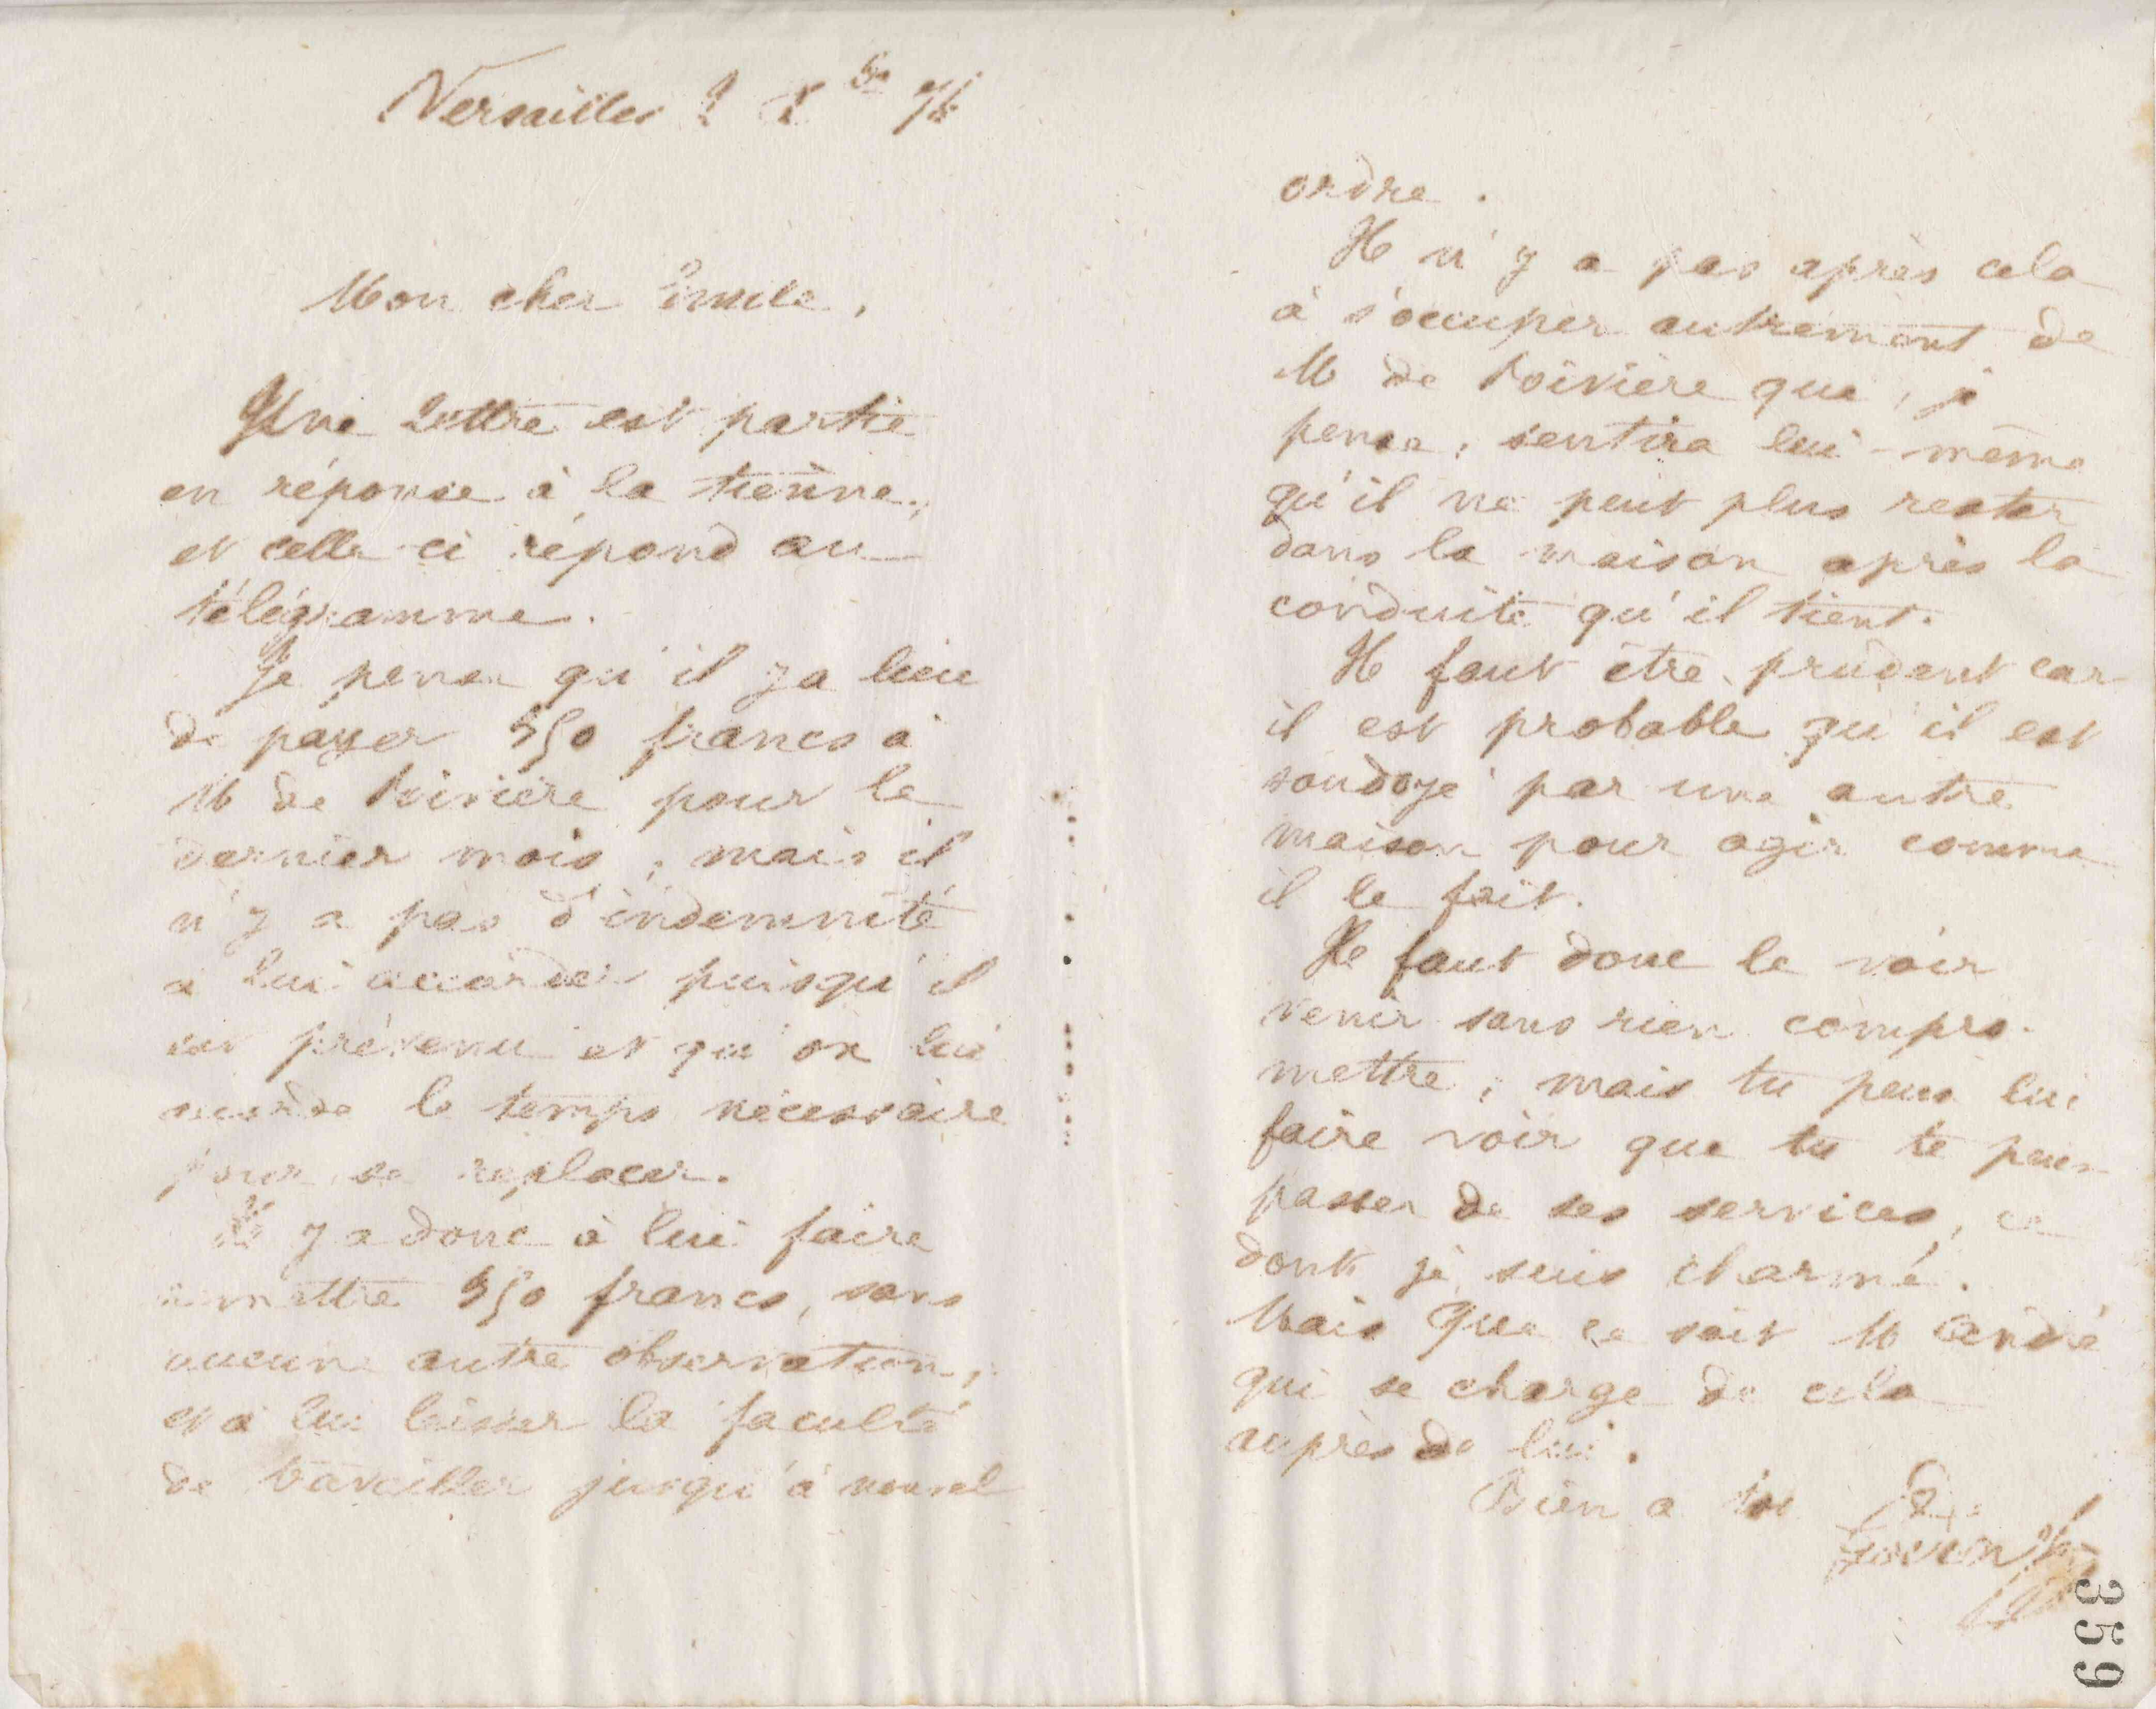 Versailles 2 X bre 76
Mon cher Emile,
Une lettre est partie
en réponse à la tienne,
et celle-ci répond au
télégramme.
Je pense qu'il y a lieu
de payer 350 francs à
M de Boivière pour le
dernier mois ; mais il
n'y a pas d'indemnité
à lui accorder puisqu'il
est prévenu et qu'on lui
accorde le temps nécessaire
pour se replacer.
Il y a donc à lui faire
remettre 350 francs, sans
aucune autre observation,
et à lui laisser la faculté
de travailler jusqu'à nouvel
ordre.
Il n'y a pas après cela
à s'occuper autrement de
M de Boivière que, je
pense, sentira lui-même
qu'il ne peut plus rester
dans la maison après la
conduite qu'il tient.
Il faut être prudent car
il est probable qu'il est
soudoyé par une autre
maison pour agir comme
il le fait.
Il faut donc le voir
venir sans rien compro-
mettre ; mais tu peux lui
faire voir que tu te peux
passer de ses services, ce
dont je suis charmé.
Mais que ce soit M André
qui se charge de cela
auprès de lui.
Bien à toi
Godin
359